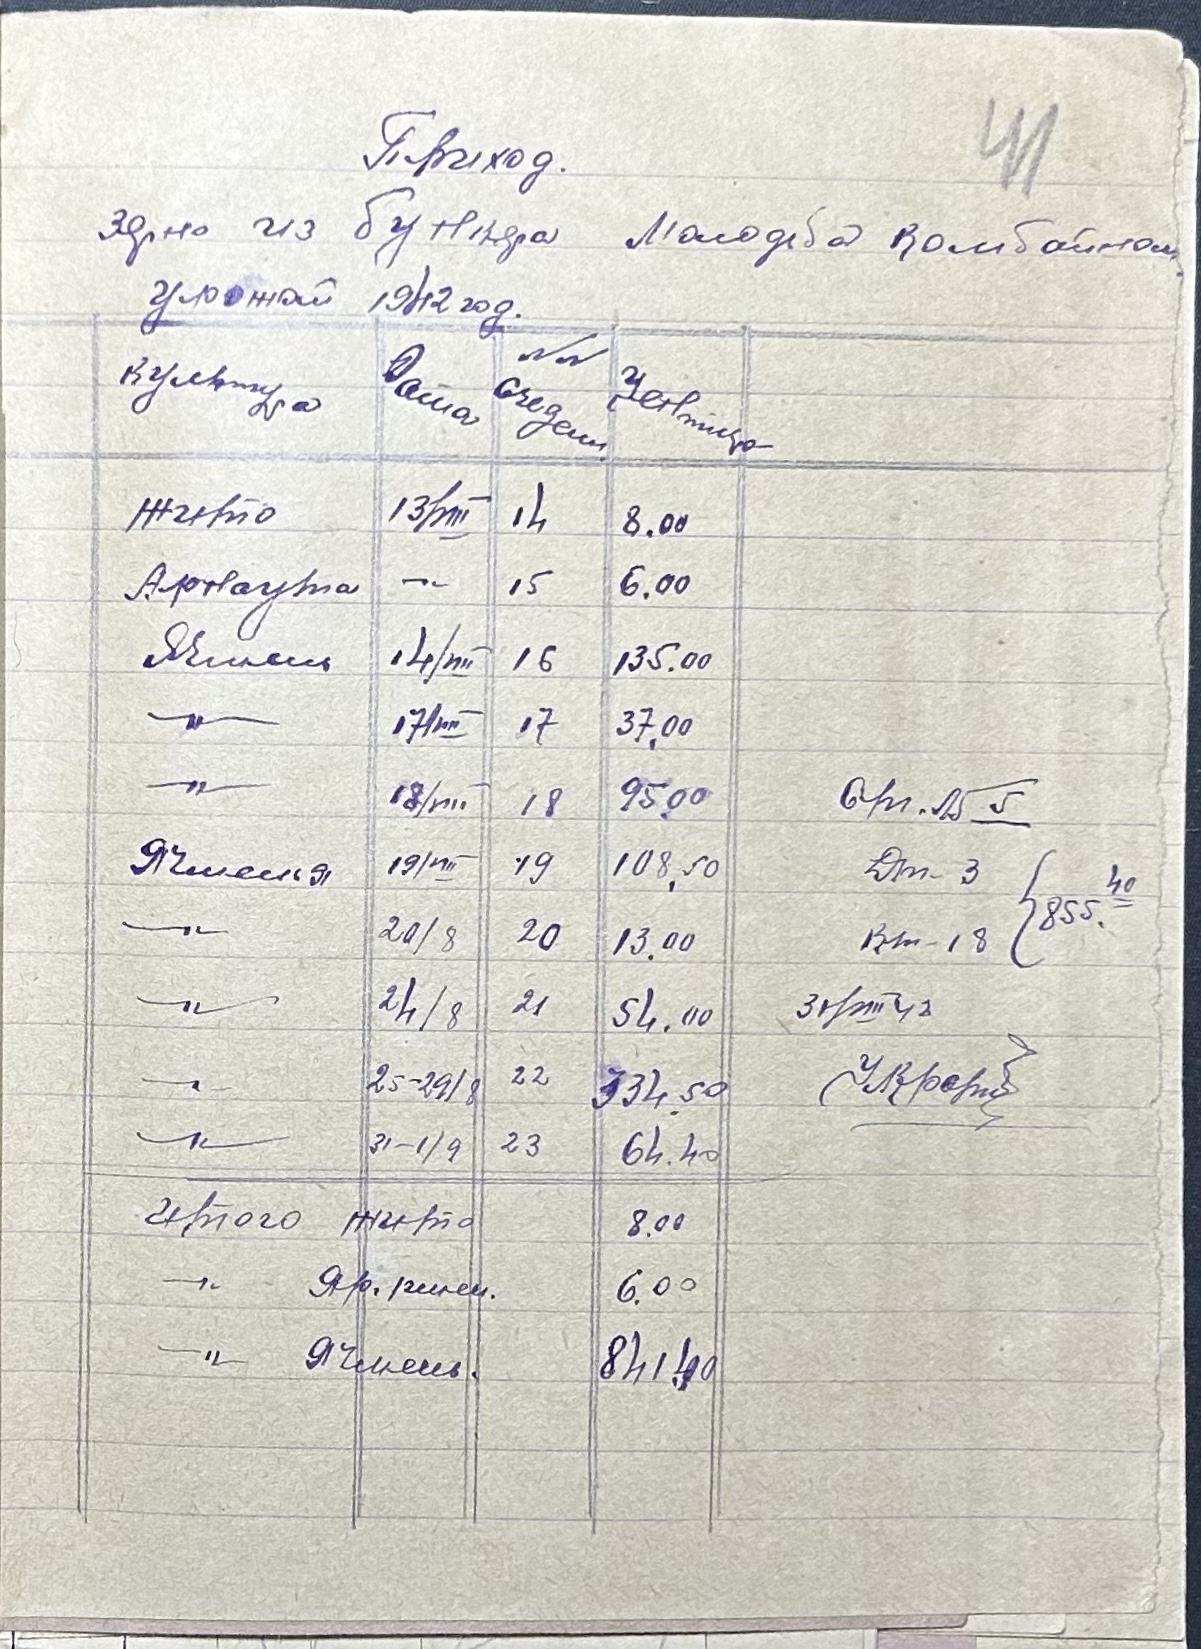 41
Приход.
Зерно из бункера Молодьба комбайном
урожай 1942 год.
Культура Дата №№ сведени Центнера
Жито 13/VIII 14 8.00
Арнаутка -"- 15 6.00
Ячмень 14/VIII 16 135.00
-"- 17/VIII 17 37.00
-"- 18/VIII 18 95.00 Ст. № 5
Ячменя 19/VIII 19 108.50 Дт- 3
-"- 20/8 20 13.00 Кт-18 } 855.40
-"- 24/8 21 54.00 31/VIII 42
-"- 25-29/8 22 334.50
-"- 31-1/9 23 64.40
Итого жито 8.00
-"- Яр. пшен. 6.00
-"- Ячмень. 841.40